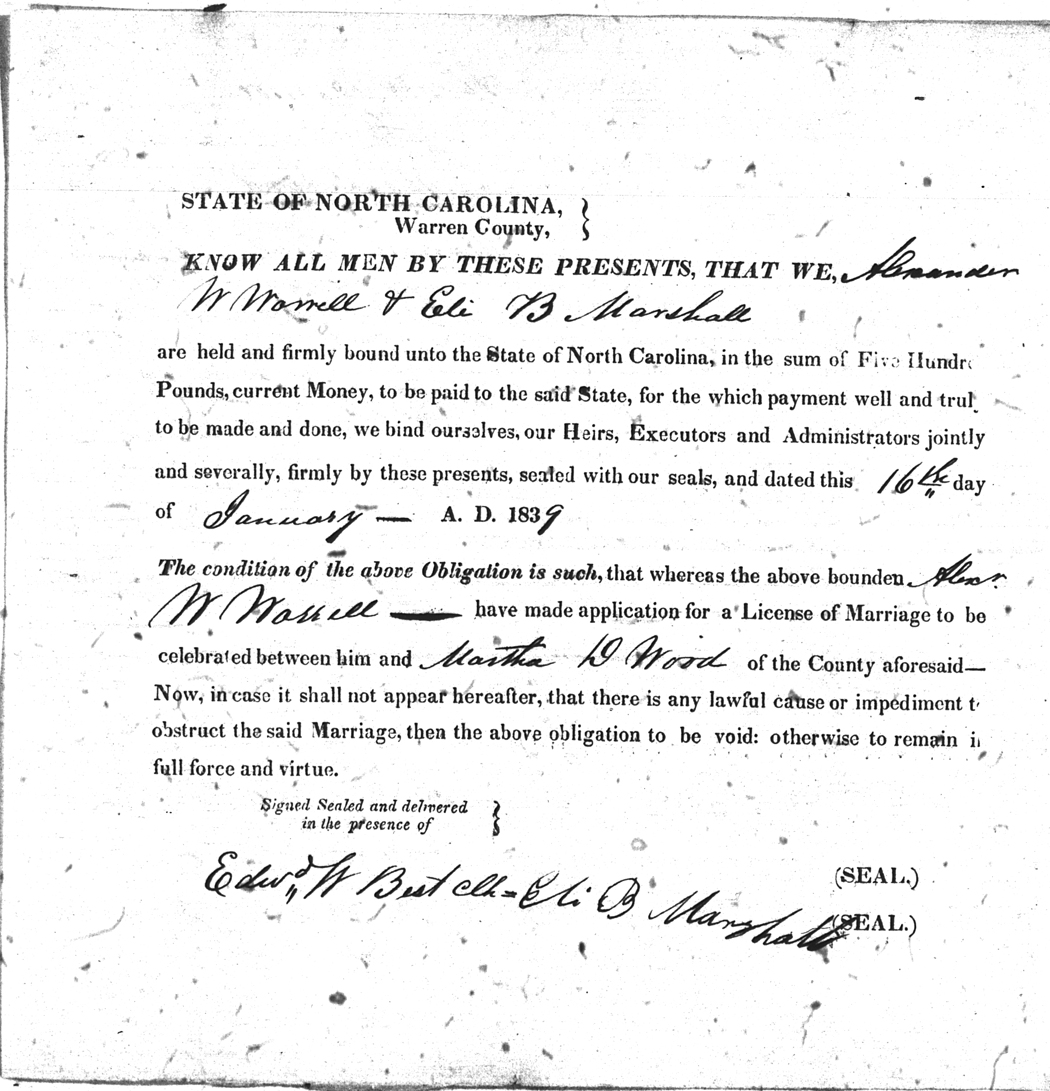 STATE OF NORTH CAROLINA,
Warren County,
KNOW ALL MEN BY THESE PRESENTS, THAT WE, Alexander
W Worrell & Eli B Marshall
are held and firmly bound unto the State of North Carolina, in the sum of Five Hundre
Pounds, current Money, to be paid to the said State, for the which payment well and trul
to be made and done, we bind ourselves, our Heirs, Executors and Administrators jointly
and severally, firmly by these presents, sealed with our seals, and dated this 16th day
of January — A. D. 1839
The condition of the above Obligation is such, that whereas the above bounden Alexr
W Worrell — have made application for a License of Marriage to be
celebrated between him and Martha D Wood of the County aforesaid—
Now, in case it shall not appear hereafter, that there is any lawful cause or impediment t
obstruct the said Marriage, then the above obligation to be void: otherwise to remain i
full force and virtue.
Signed Sealed and delivered
in the presence of
(SEAL.)
Edwd W Best clk= Eli B Marshall (SEAL.)